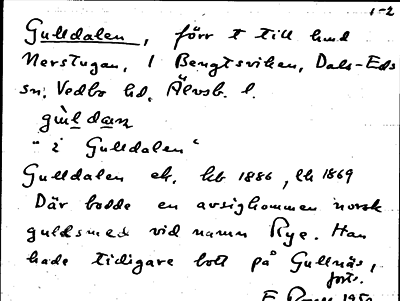 1-2
Gulldalen, förr t till hmd
Nerstugan, 1 Bengtsviken, Dals-Eds
sn, Vedbo hd, Älvsb. l.
gùldaɳ
"i Gulldalen"
Gulldalen ek, hb 1886, lh 1869
Där bodde en avsigkommen norsk
guldsmed vid namn Rye. Han
hade tidigare bott på Gullnäs,
forts.